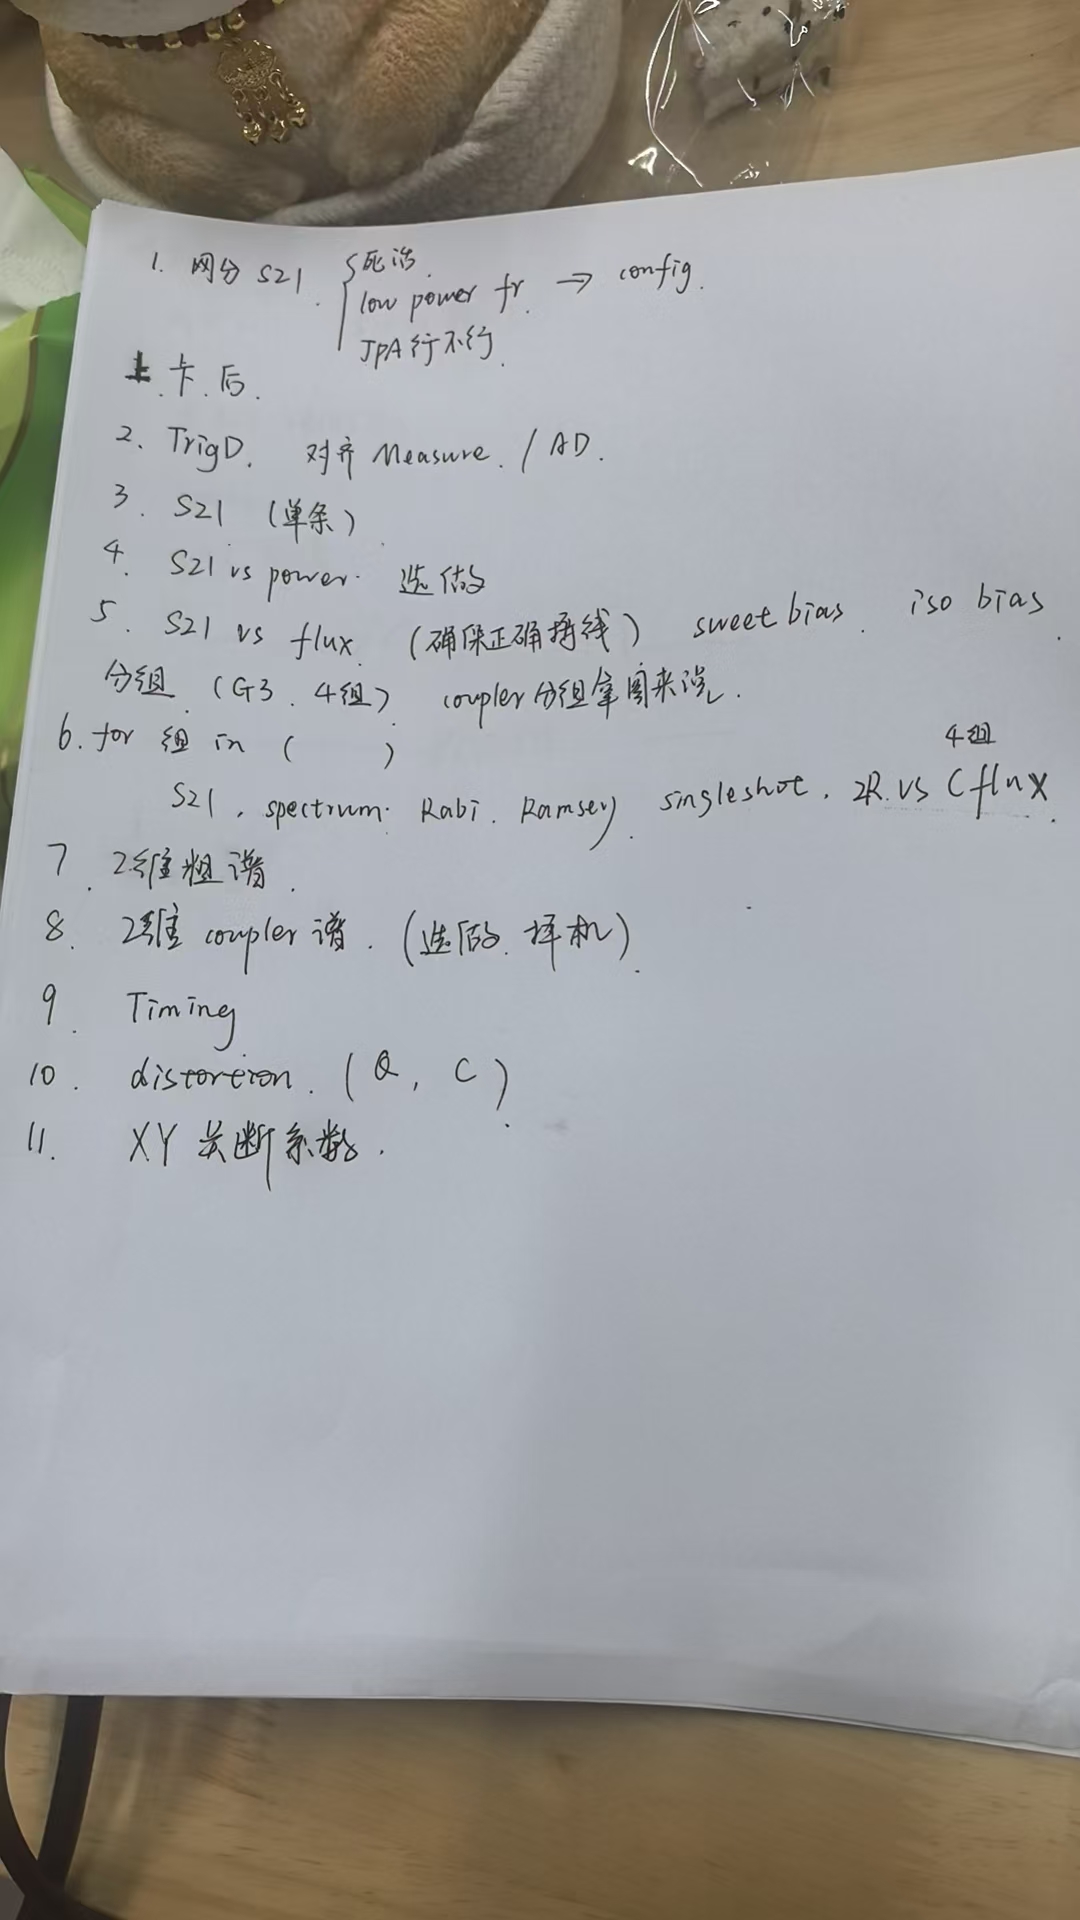 1. 网分 S21 { 死活.
low power fr. → config.
JPA 行不行.
上.卡.后.
2. TrigD. 对齐 Measure. / AD.
3. S21 (单条)
4. S21 vs power. 选做
5. S21 vs flux. (确保正确接线) sweet bias. iso bias.
分组. (G3. 4组). coupler 分组拿图来说.
4组
6. for 组 in ( )
S21, spectrum. Rabi. Ramsey. singleshot. 2R. vs C flux.
7. 2维粗谱.
8. 2维 coupler 谱. (选做. 择机).
9. Timing
10. distortion. (Q, C).
11. XY 关断系数.